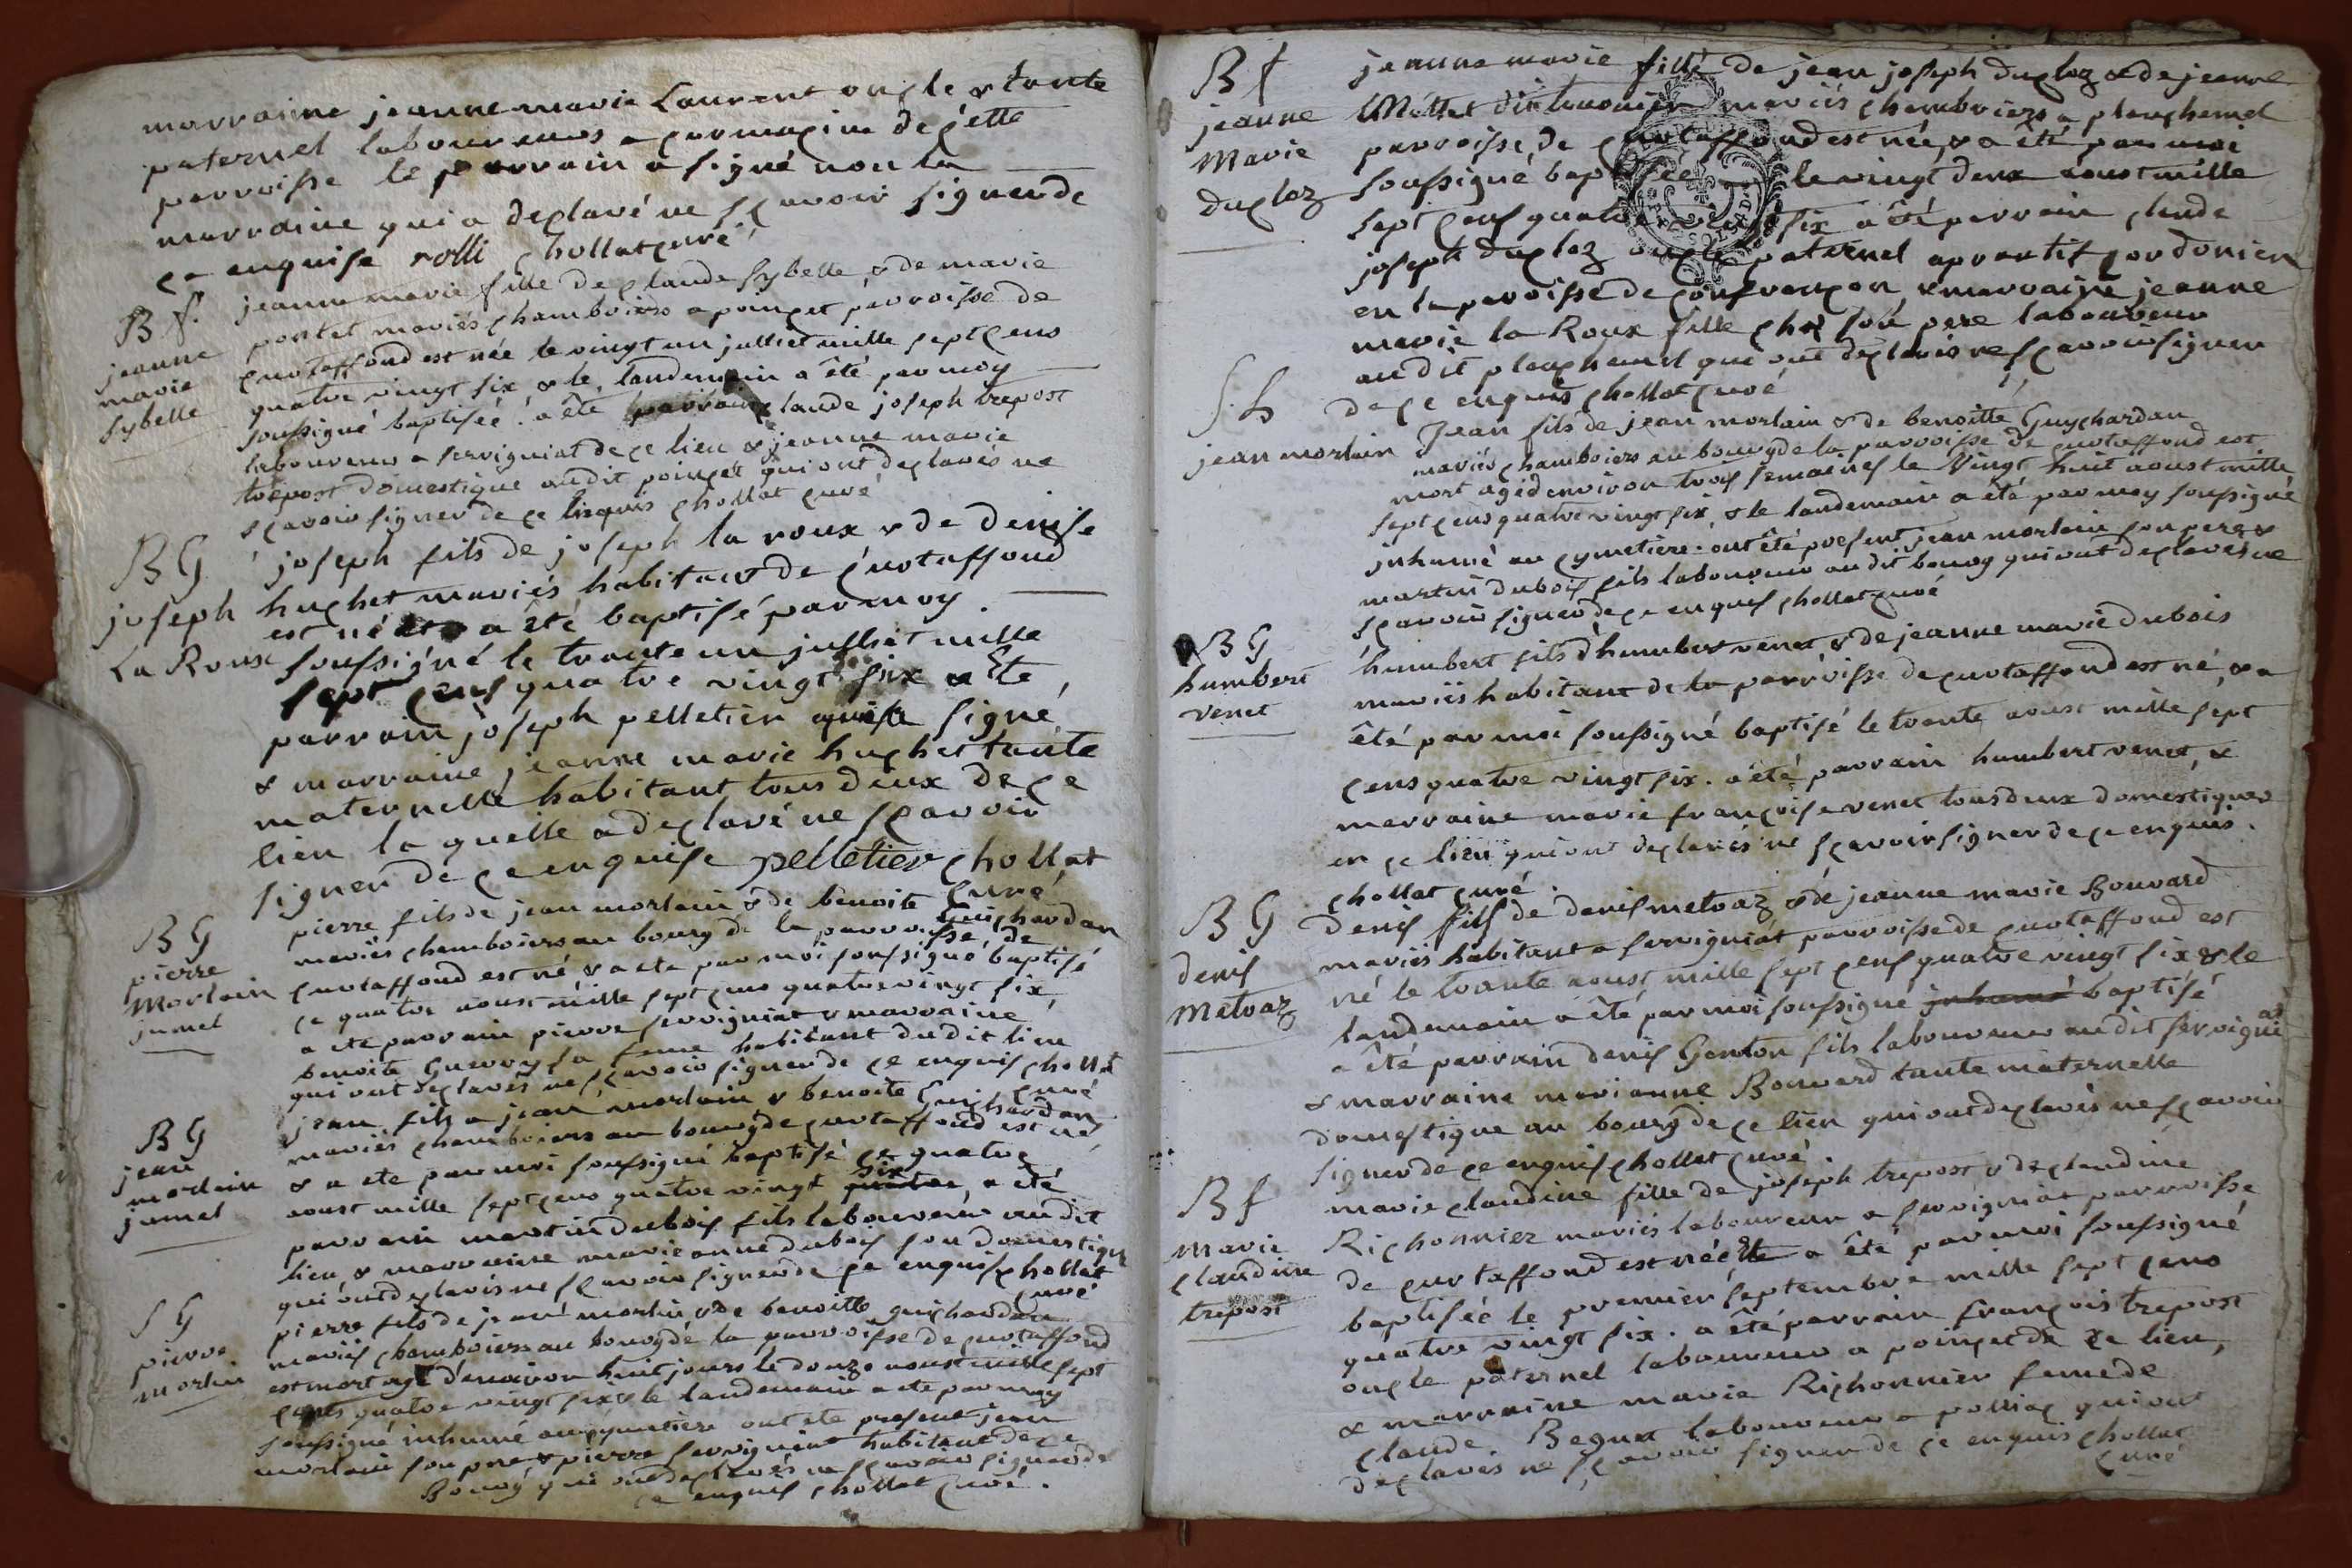 marraine jeanne marie Laurent oncle & tante
paternel laboureurs a cormaçin de çette
parroisse le parrain a signé non la
marraine qui a declaré ne sçavoir signer de
ce enquise rolli chollat curé
B f. jeanne marie fille de claude sybelle & de marie
jeanne portet mariés chamboiers a poinçet parroisse de
marie curtaffond est née le vingt un julliet mille sept cens
sybelle quatre vingt six & le landemain a été par moy
soussigné baptiséé. a été parrain claude joseph trepost
laboureur a servigniat de ce lieu & jeanne marie
trepost domestique audit poinçet qui ont declarés ne
sçavoir signer de ce enquis chollat curé
B G joseph fils de joseph la roux & de denise
joseph huchet mariés habitans de curtaffond
La Roux est né & a été baptisé par moy
soussigné le trante un julliet mille
sept cens quatre vingt six a été
parrain joseph pelletier qui a signé
& marraine jeanne marie huchet tante
maternelle habitant tous deux de ce
lieu la quelle a declaré ne sçavoir
signer de ce enquise pelletier chollat
curé
B G pierre fils de jean morlain & de benoite Guichardan
pierre mariés chamboiers au bourg de la parroisse de
Morlain curtaffond est né & a eté par moi soussigné baptisé
jumel ce quatre aoust mille sept cens quatre vingt six
a eté parrain pierre servigniat & marraine
benoite Guerry sa feme habitant dudit lieu
qui ont declarés ne sçavoir signer de ce enquis chollat
curé
B G jean fils a jean morlain & benoite Guichardan
jean mariés chamboiers au bourg de curtaffond est né
morlain & a eté par moi soussigné baptisé ce quatre
jumel aoust mille sept cens quatre vingt quatre six, a eté
parrain martin dubois fils laboureur audit
lieu, & marraine marie anne dubois son domestique
qui ont declarés ne sçavoir signer de ce enquis chollat
curé
S G pierre fils de jean morlin & de benoitte guichardan
pierre mariés chamboiers au bourg de la parroisse de curtaffond
morlin est mort agé d'environ huit jours le douze aoust mille sept
cents quatre vingt six & le landemain a eté par moy
soussigné inhumé au cymetiere ont eté present jean
morlain son pere & pierre servigniat habitant de ce
Bourg qui ont declarés ne sçavoir signer de
ce enquis chollat curé.
B f jeanne marie fille de jean joseph ducloz & de jeanne
jeanne Mettet mariés chambriers a plauchemel
Marie parroisse de curtaffond est née, & a été par moi
ducloz soussigné baptiséé le vingt deux aoust mille
sept cens quatre vingt six a été parrain claude
joseph ducloz oncle paternel aprantif cordonier
en la paroisse de confrançon & marraine jeanne
marie la Roux fille chés son pere laboureur
audit plauchemel qui ont declarés ne sçavoir signer
de ce enquis chollat curé
S. G Jean fils de jean morlain & de benoitte Guychardan
jean morlain mariés chamboiers au bourg de la parroisse de curtaffond est
mort agé d'environ trois semaines le vingt huit aoust mille
sept cens quatre vingt six, & le landemain a été par moy soussigné
inhumé au cymetiere. ont été present jean morlain son pere &
martin dubois fils laboureur audit bourg qui ont declarés ne
sçavoir signer de ce enquis chollat curé
B G humbert fils d'humbert venet & de jeanne marie dubois
humbert mariés habitant de la parroisse de curtaffond est né, & a
venet été par moi soussigné baptisé le trante aoust mille sept
cens quatre vingt six. a été parrain humbert venet, &
marraine marie françoise venet tous deux domestiques
en ce lieu qui ont declarés ne sçavoir signer de ce enquis.
chollat curé.
B G Denis fils de denis metraz & de jeanne marie Bouvard
denis mariés habitant a servigniat parroisse de curtaffond est
Metraz né le trante aoust mille sept cens quatre vingt six & le
landemain a été par moi soussigné inhumé baptisé
a été parrain denis Genton fils laboureur audit servigniat
& marraine marianne Bouvard tante maternelle
domestique au bourg de ce lieu qui ont declarés ne sçavoir
signer de ce enquis chollat curé.
B f marie claudine fille de joseph trepost & de claudine
Marie Richonnier mariés laboureur a servigniat parroisse
claudine de curtaffond est néé & a été par moi soussigné
trepost baptiséé le premier septembre mille sept cens
quatre vingt six. a été parrain françois trepost
oncle paternel laboureur a poinçet de ce lieu,
& marraine marie Richonnier feme de
claude. Beguet laboureur a polliac qui ont
declarés ne sçavoir signer de ce enquis chollat
curé